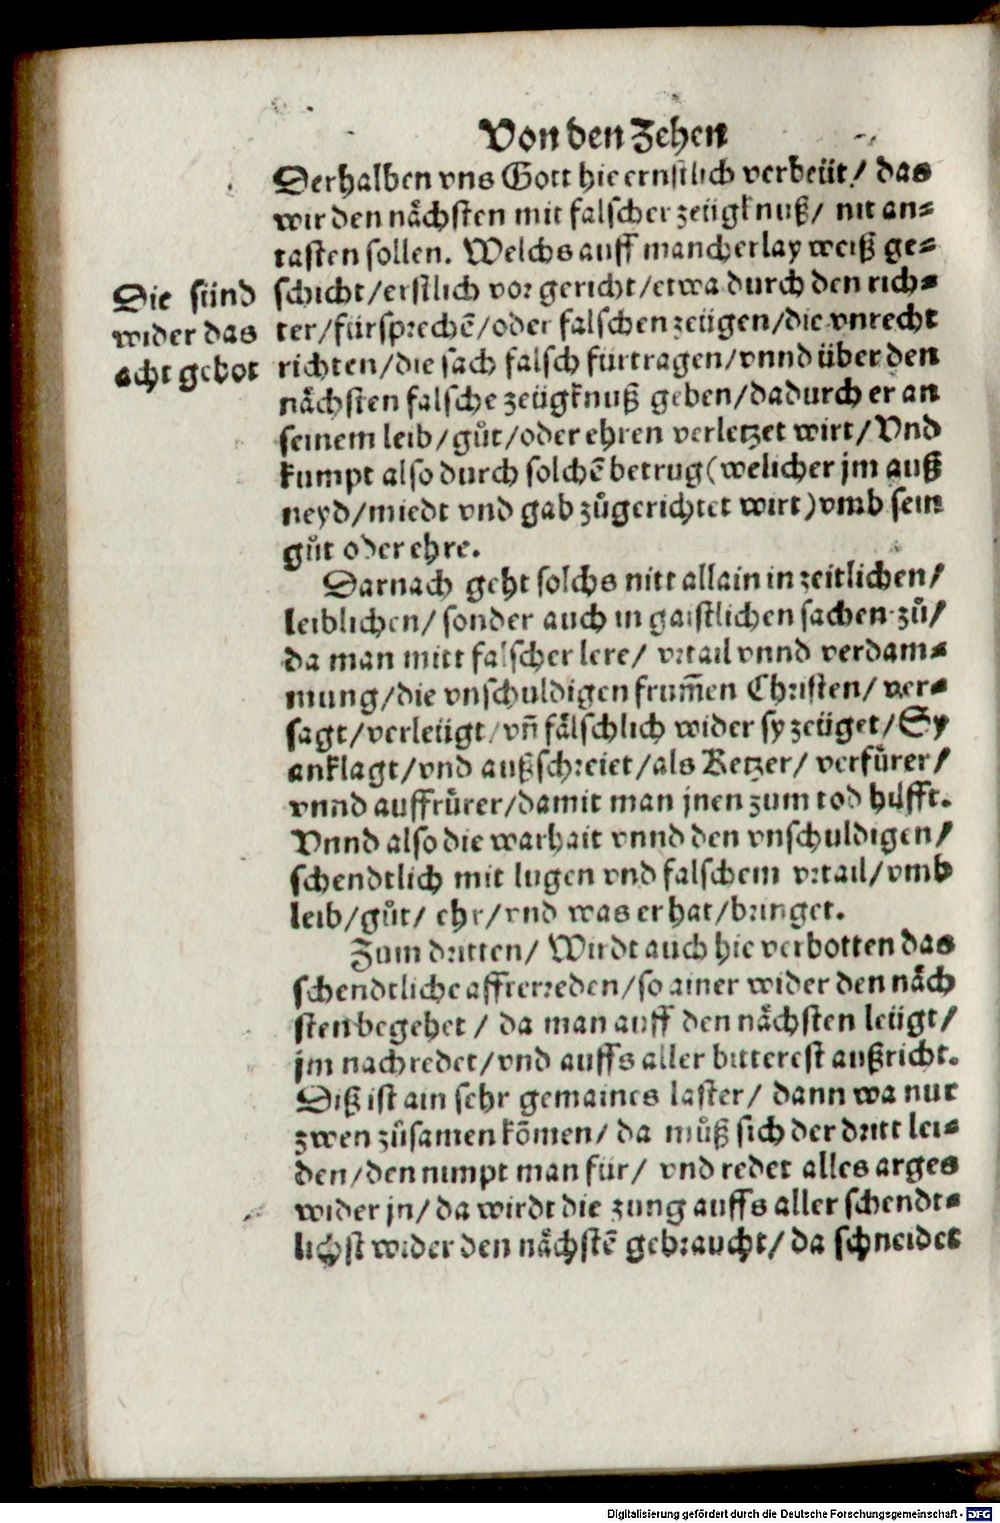 Von den Zehen
Derhalben vns Gott hie ernstlich verbeüt / das
wir den nächsten mit falscher zeügknuß / nit an=
tasten sollen. Welchs auff mancherlay weiß ge=
schicht / erstlich vor gericht / etwa durch den rich=
ter / fürsprechē / oder falschen zeügen / die vnrecht
richten / die sach falsch fürtragen / vnnd über den
nächsten falsche zeügknuß geben / dadurch er an
seinem leib / gůt / oder ehren verletzet wirt / Vnd
kumpt also durch solchē betrug (welicher jm auß
neyd / miedt vnd gab zůgerichtet wirt) vmb sein
gůt oder ehre.
Die sünd
wider das
acht gebot
Darnach geht solchs nitt allain in zeitlichen /
leiblichen / sonder auch in gaistlichen sachen zů /
da man mitt falscher lere / vrtail vnnd verdam=
mung / die vnschuldigen frum̄en Christen / ver=
sagt / verleügt / vn̄ fälschlich wider sy zeüget / Sy
anklagt / vnd außschreiet / als Ketzer / verfürer /
vnnd auffrürer / damit man jnen zum tod hilfft.
Vnnd also die warhait vnnd den vnschuldigen /
schendtlich mit lugen vnd falschem vrtail / vmb
leib / gůt / ehr / vnd was er hat / bringet.
Zum dritten / Wirdt auch hie verbotten das
schendtliche affterreden / so ainer wider den näch
sten begehet / da man auff den nächsten leügt /
jm nachredet / vnd auffs aller bitterest außricht.
Diß ist ain sehr gemaines laster / dann wa nur
zwen zůsamen kōmen / da můß sich der dritt lei=
den / den nimpt man für / vnd redet alles arges
wider jn / da wirdt die zung auffs aller schendt=
lichst wider den nächstē gebraucht / da schneidet
Digitalisierung gefördert durch die Deutsche Forschungsgemeinschaft - DFG